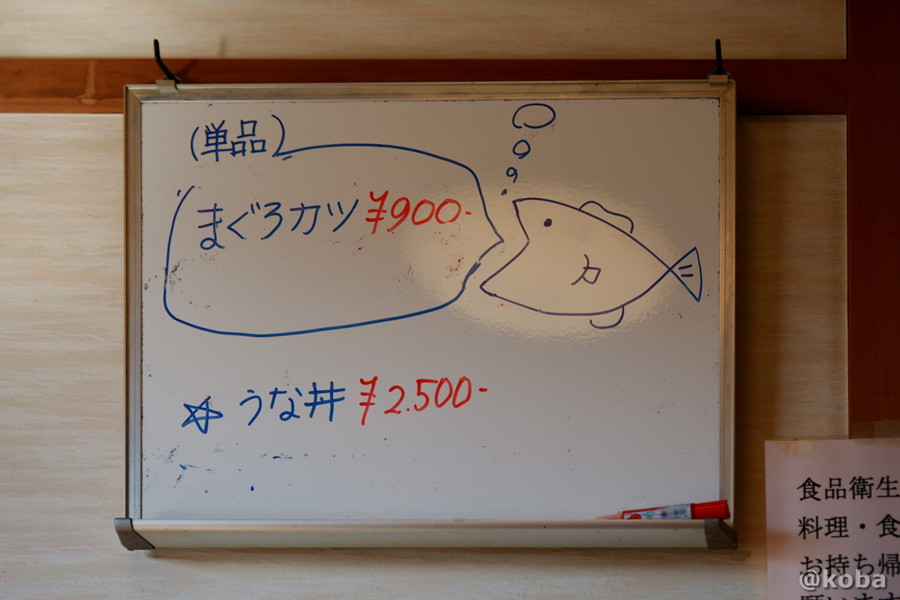 (単品)
まぐろカツ ¥900-
カ
☆ うな丼 ¥2.500-
食品衛生
料理・食
お持ち帰
願います
@koba